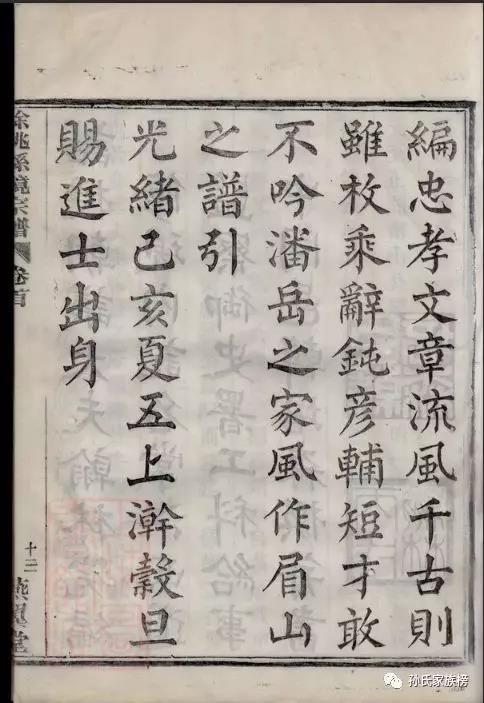 編忠孝文章流風千古則
雖枚乘辭鈍彥輔短才敢
不吟潘岳之家風作眉山
之譜引
光緒己亥夏五上澣穀旦
賜進士出身
餘姚孫境宗譜
卷首
十二
燕翼堂
孙氏家族榜